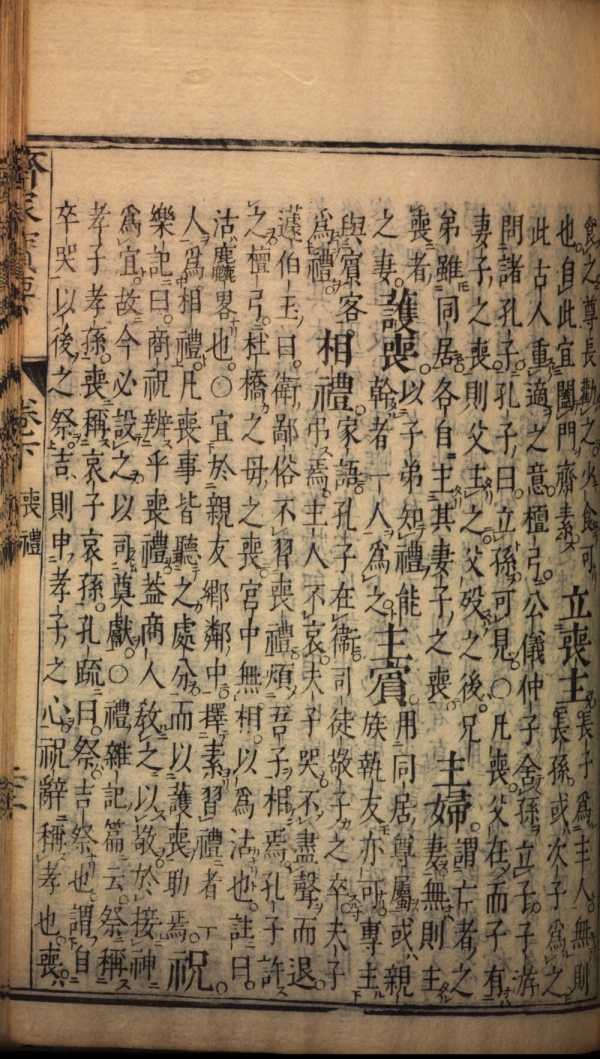 食之尊長勸之少食可
也自此宜闔門齋素 立喪主 長子爲主人無則長孫或次子爲之
此古人重適之意檀弓公儀仲子舍孫立子子游
問諸孔子孔子曰立孫可見〇凡喪父在而子有
妻子之喪則父主之父殁之後兄
弟雖同居各自主其妻子之喪 主婦 謂亡者之妻無則主
喪者之妻 護喪 以子弟知禮能幹者一人爲之 主賓 用同居尊屬或親族執友亦可專主
與賓客爲禮 相禮 家語孔子在衛司徒敬子之卒夫子弔焉主人不哀夫子哭不盡聲而退
蘧伯玉曰衛鄙俗不習喪禮煩吾子相焉孔子許
之檀弓杜橋之母之喪宮中無相以爲沽也註曰
沽麤畧也〇宜於親友鄉鄰中擇素習禮者一
人爲相禮凡喪事皆聽之處分而以護喪助焉 祝
樂記曰商祝辨乎喪禮葢商人敎之以敬於接神
爲宜故今必設之以司奠獻〇禮雜記篇云祭稱
孝子孝孫喪稱哀子哀孫孔疏曰祭吉祭也謂自
卒哭以後之祭吉則申孝子之心祝辭稱孝也喪
卷六 喪禮